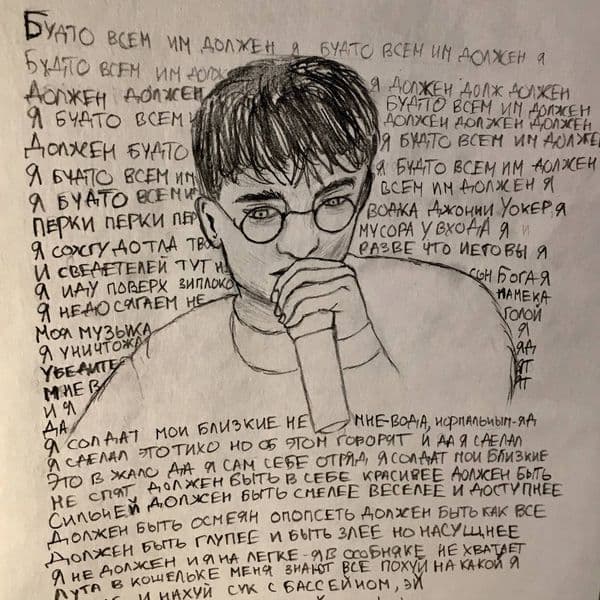 Будто всем им должен я будто всем им должен я
Будто всем им должен я должен долж должен
должен должен будто всем им должен
я будто всем должен должен должен
должен будто я будто всем им должен
я будто всем им я будто всем им должен
я будто всем им всем им должен я
перки перки пер водка Джонни Уокер, я
я сожгу дотла твой мусора у входа я и
и сведетелей тут н разве что иеговы я
я иду поверх зиплоко сын бога я
я недосягаем не намека
моя музыка голой
я уничтожа я
убедите яд
мне в ят
и я ят
да
я солдат мои близкие не мне-вода, нормальным-яд
я сделал это тихо но об этом говорят и да я сделал
это в жало да я сам себе отряд, я солдат мои близкие
не спят должен быть в себе красивее должен быть
сильней должен быть смелее веселее и доступнее
должен быть осмеян опопсеть должен быть как все
должен быть глупее и быть злее но насущнее
я не должен и я на легке-я в особняке не хватает
лута в кошельке меня знают все похуй на какой я
и нахуй сук с бассейном, эй